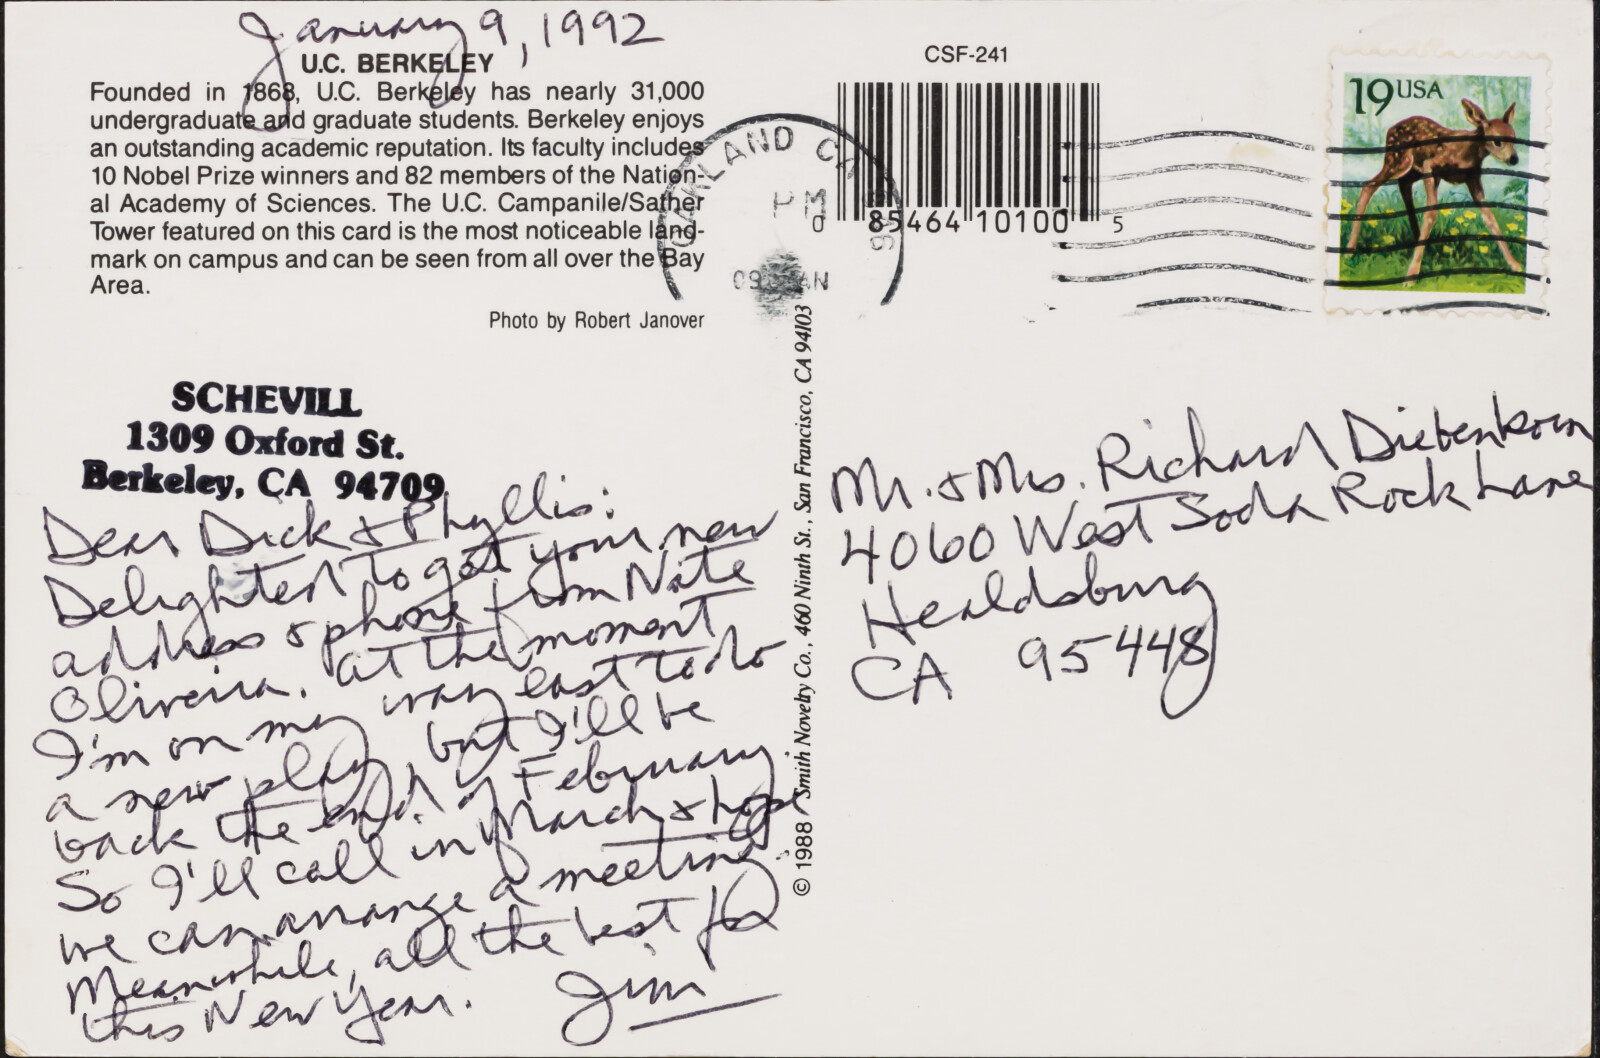 January 9, 1992
U.C. BERKELEY
Founded in 1868, U.C. Berkeley has nearly 31,000
undergraduate and graduate students. Berkeley enjoys
an outstanding academic reputation. Its faculty includes
10 Nobel Prize winners and 82 members of the Nation-
al Academy of Sciences. The U.C. Campanile/Sather
Tower featured on this card is the most noticeable land-
mark on campus and can be seen from all over the Bay
Area.
Photo by Robert Janover
SCHEVILL
1309 Oxford St.
Berkeley, CA 94709
Dear Dick & Phyllis:
Delighted to get your new
address & phone from Nate
Oliveira. At the moment
I'm on my way east to do
a new play but I'll be
back the end of February.
So I'll call in March & hope
we can arrange a meeting.
Meanwhile, all the best for
this New Year.
Jim
© 1988 Smith Novelty Co., 460 Ninth St., San Francisco, CA 94103
CSF-241
0 85464 10100 5
OAKLAND CA
PM
09 JAN
19 USA
Mr. & Mrs. Richard Diebenkorn
4060 West Soda Rock Lane
Healdsburg
CA 95448